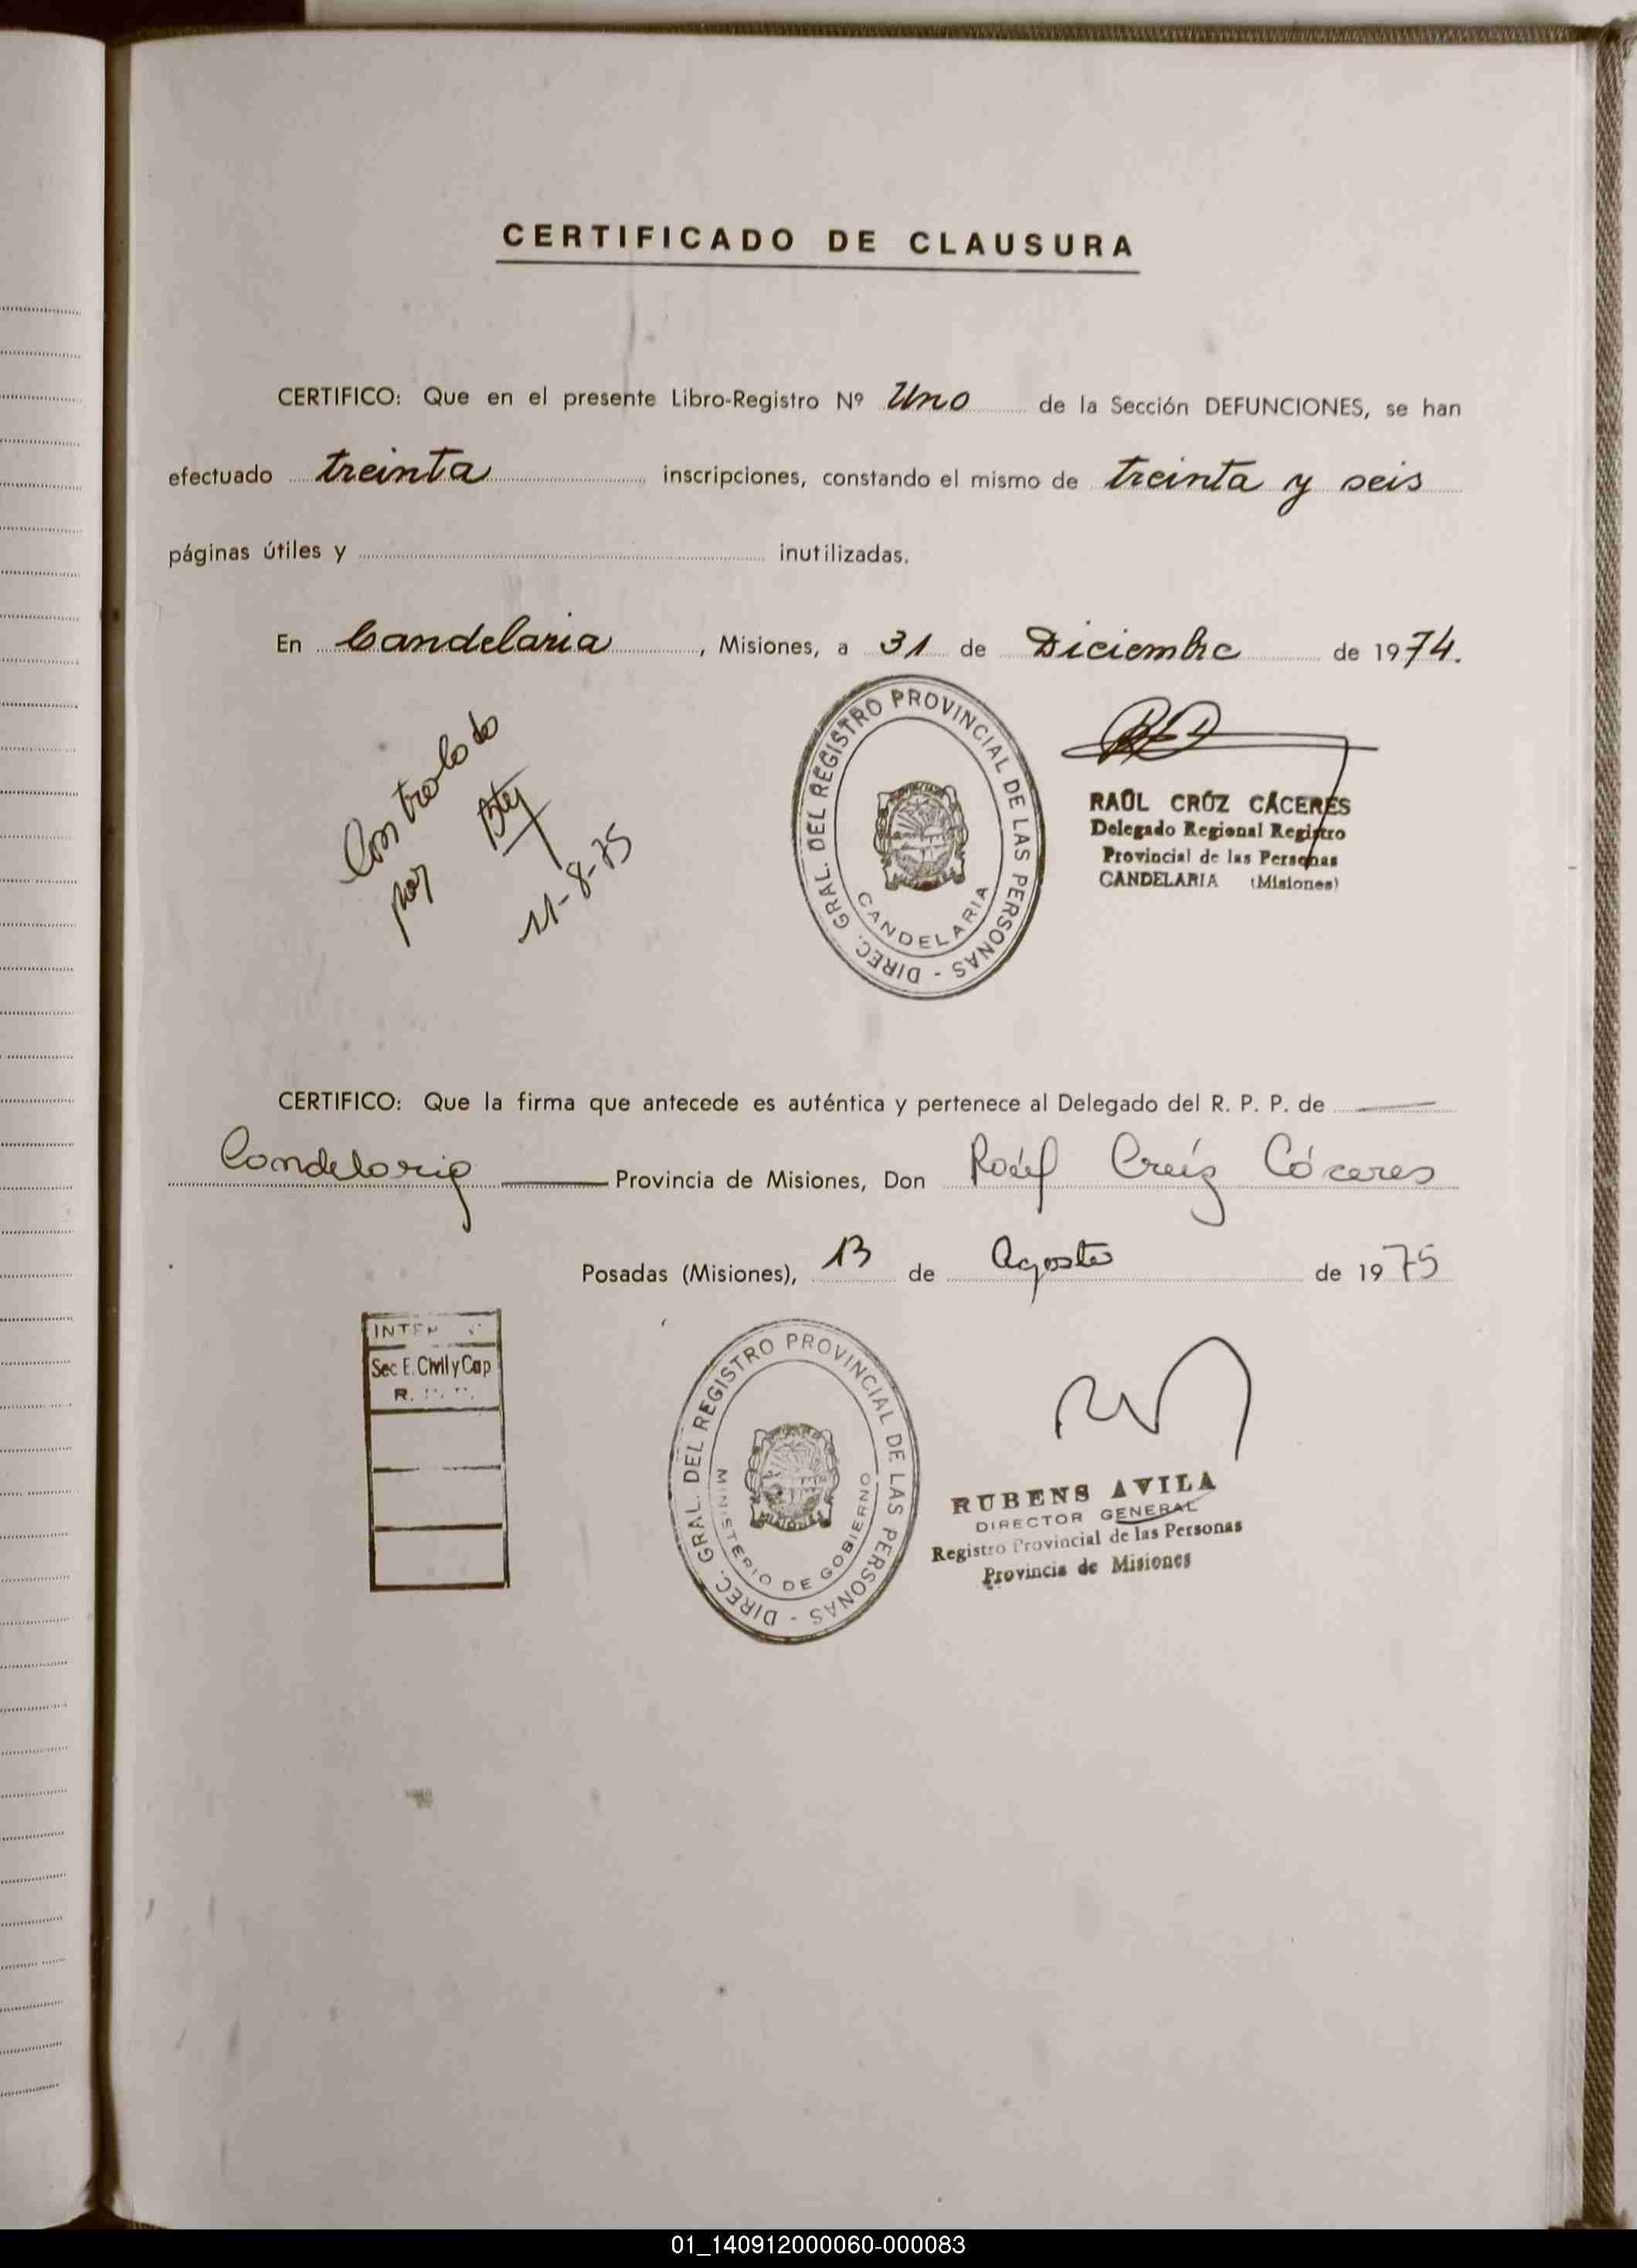 CERTIFICADO DE CLAUSURA
CERTIFICO: Que en el presente Libro-Registro Nº Uno de la Sección DEFUNCIONES, se han
efectuado treinta inscripciones, constando el mismo de treinta y seis
páginas útiles y inutilizadas.
En Candelaria, Misiones, a 31 de Diciembre de 1974.
Controlado
por
11-8-75
DIREC. GRAL. DEL REGISTRO PROVINCIAL DE LAS PERSONAS -
CANDELARIA
RAÚL CRÚZ CÁCERES
Delegado Regional Registro
Provincial de las Personas
CANDELARIA (Misiones)
CERTIFICO: Que la firma que antecede es auténtica y pertenece al Delegado del R. P. P. de
Candelaria Provincia de Misiones, Don Raúl Crúz Cáceres
Posadas (Misiones), 13 de Agosto de 1975
Sec E. Civil y Cap
R.
DIREC. GRAL. DEL REGISTRO PROVINCIAL DE LAS PERSONAS -
MINISTERIO DE GOBIERNO
MISIONES
RUBENS AVILA
DIRECTOR GENERAL
Registro Provincial de las Personas
Provincia de Misiones
01_140912000060-000083